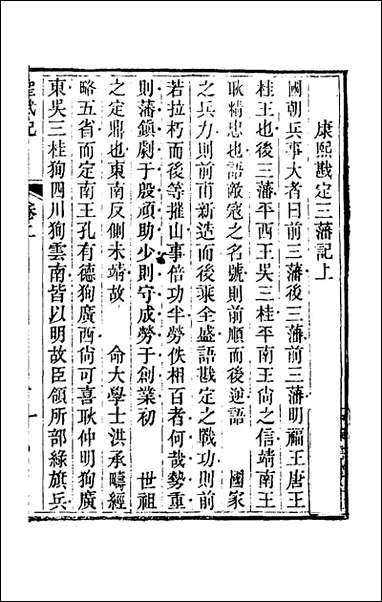 康熙戡定三藩記上
國朝兵事大者曰前三藩後三藩前三藩明福王唐王
桂王也後三藩平西王吳三桂平南王尙之信靖南王
耿精忠也語敵寇之名號則前順而後逆語　國家
之兵力則前甫新造而後乘全盛語戡定之戰功則前
若拉朽而後等摧山事倍功半勞佚相百者何哉勢重
則藩鎮劇于殷頑助少則守成勞于創業初　世祖
之定鼎也東南反側未靖故　命大學士洪承疇經
略五省而定南王孔有德狥廣西尙可喜耿仲明狥廣
東吳三桂狥四川狥雲南皆以明故臣領所部綠旗兵
聖武記